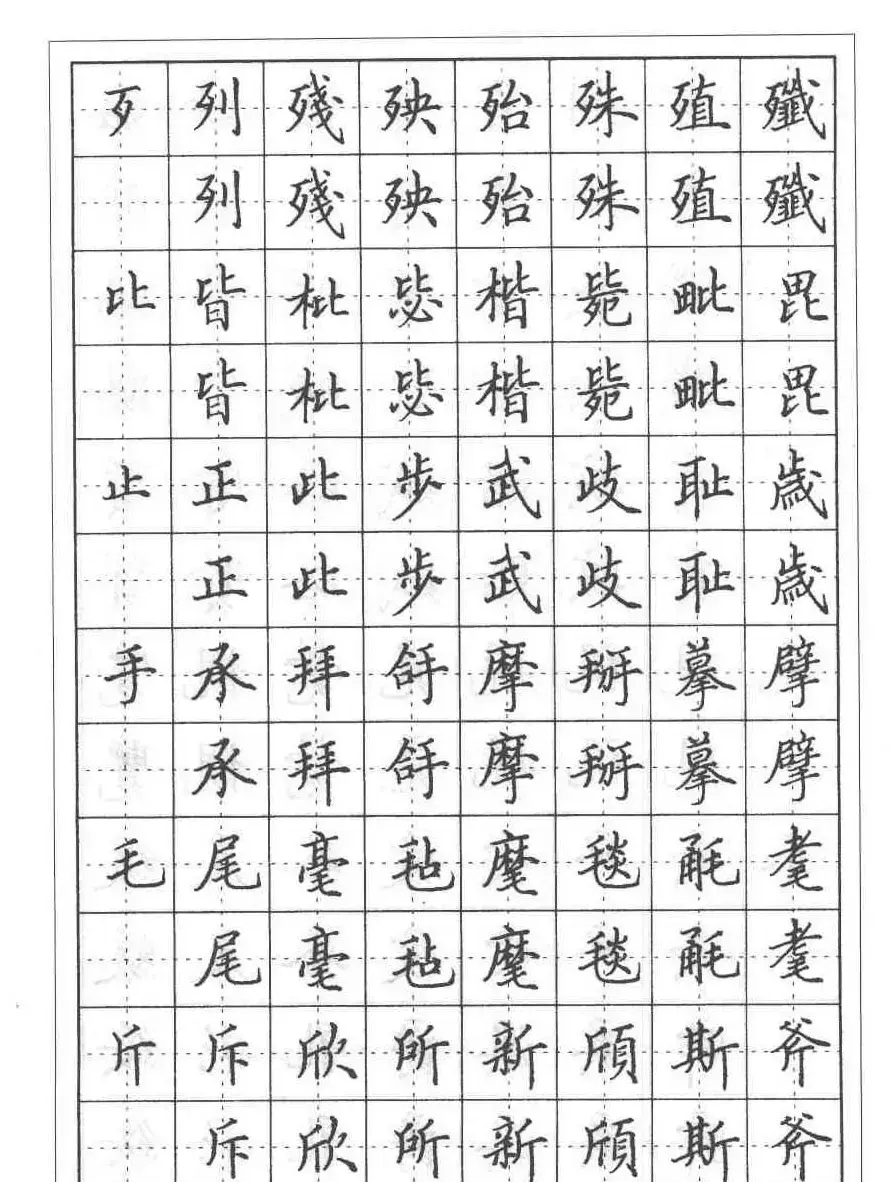 歹列殘殃殆殊殖殲
列殘殃殆殊殖殲
比皆枇毖楷毙毗毘
皆枇毖楷毙毗毘
止正此步武歧耻歲
正此步武歧耻歲
手承拜掰摹擘
承拜掰摹擘
毛尾毫毡麾毯毻耄
尾毫毡麾毯耄
斤斥欣所新頎斯斧
斥欣所新頎斯斧